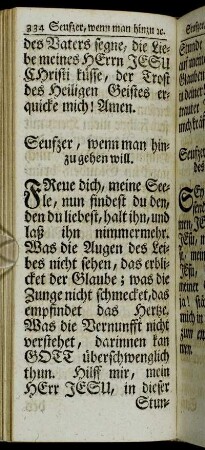 334 Seufzer, wenn man hinzu ꝛc.
des Vaters segne, die Lie-
be meines HErrn JESU
CHristi küsse, der Trost
des Heiligen Geistes er-
quicke mich! Amen.
Seufzer, wenn man hin-
zu gehen will.
FReue dich, meine See-
le, nun findest du den,
den du liebest, halt ihn, und
laß ihn nimmermehr.
Was die Augen des Lei-
bes nicht sehen, das erbli-
cket der Glaube; was die
Zunge nicht schmecket, das
empfindet das Hertze.
Was die Vernunfft nicht
verstehet, darinnen kan
GOTT überschwenglich
thun. Hilff mir, mein
HErr JESU, in dieser
Stun-